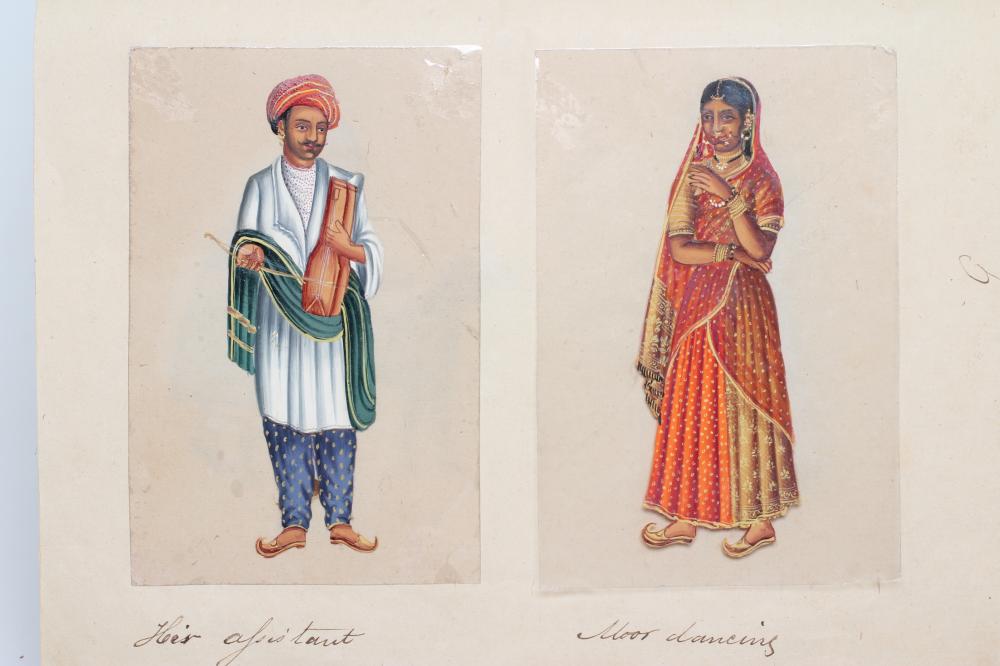 Her assistant
Moor dancing
G